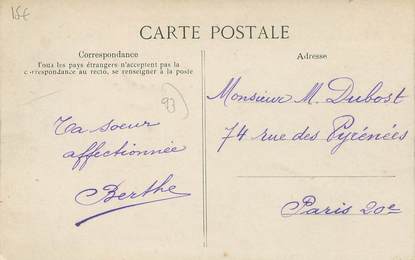 15€
CARTE POSTALE
Correspondance
Tous les pays étrangers n'acceptent pas la
correspondance au recto, se renseigner à la poste
Adresse
93
Ta soeur
affectionnée
Berthe
Monsieur M. Dubost
74 rue des Pyrénées
Paris 20e